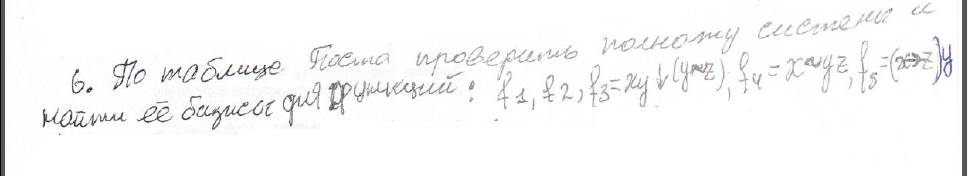 6. По таблице Поста проверить полноту системы и
найти её базисы для функций: f1, f2, f3=xy↓(y~z), f4=x~yz, f5=(x→z)y